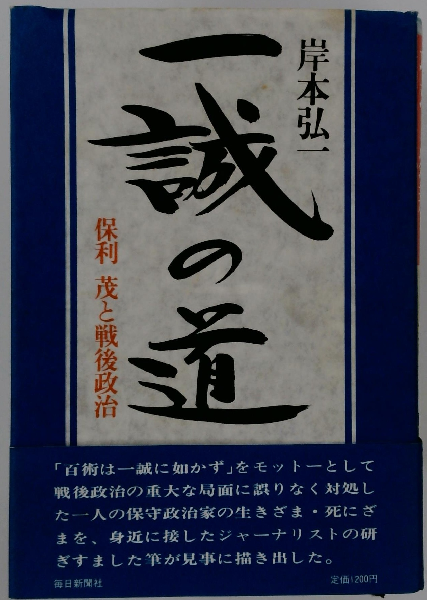 岸本弘一
一誠の道
保利 茂と戦後政治
「百術は一誠に如かず」をモットーとして
戦後政治の重大な局面に誤りなく対処し
た一人の保守政治家の生きざま・死にざ
まを、身近に接したジャーナリストの研
ぎすました筆が見事に描き出した。
毎日新聞社
定価1200円